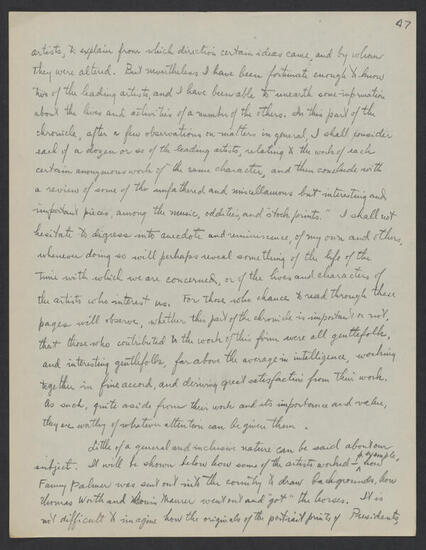 47
artists, to explain from which direction certain ideas came, and by whom
they were altered. But nevertheless I have been fortunate enough to know
two of the leading artists, and I have been able to unearth some information
about the lives and activities of a number of the others. In this part of the
chronicle, after a few observations on matters in general, I shall consider
each of a dozen or so of the leading artists, relating to the work of each
certain anonymous work of the same character, and then conclude with
a review of some of the unfathered and miscellaneous but interesting and
important pieces, among the music, oddities, and "stock prints." I shall not
hesitate to digress into anecdote and reminiscence, of my own and others,
whenever doing so will perhaps reveal something of the life of the
time with which we are concerned, or of the lives and characters of
the artists who interest us. For those who chance to read through these
pages will observe, whether this part of the chronicle is important or not,
that those who contributed to the work of this firm were all gentlefolk,
and interesting gentlefolk, far above the average in intelligence, working
together in fine accord, and deriving great satisfaction from their work.
As such, quite aside from their work and its importance and value,
they are worthy of whatever attention can be given them.
Little of a general and inclusive nature can be said about our
subject. It will be shown below how some of the artists worked – for example, how
Fanny Palmer was sent out into the country to draw backgrounds, how
Thomas Worth and Louis Maurer went out and "got" the horses. It is
not difficult to imagine how the originals of the portrait prints of Presidents,